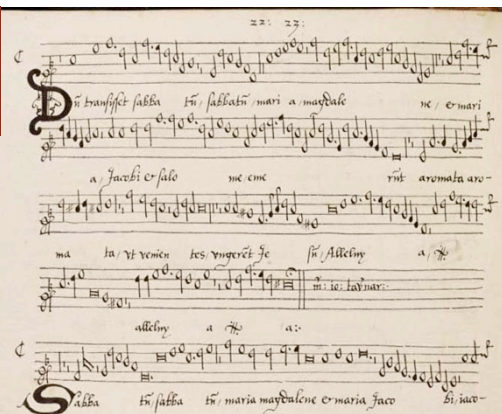 22: 23:
Dũ transisset sabba tũ / sabbatũ / mari a / magdale ne / et mari
a / Jacobi et salo me / eme rũt aromata aro-
ma ta / vt venien tes / vngerẽt Je sũ / Alleluy a /
alleluy a a:
m: io: tav̓nar:
Sabba tũ / sabba tũ / maria magdalene et maria Jaco bi / iaco-